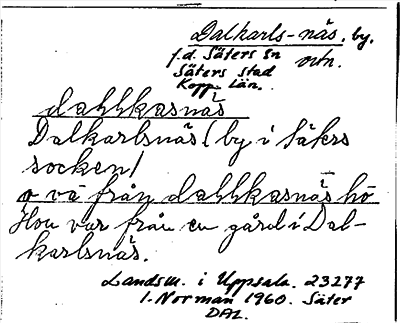 Dalkarls-näs, by.
f.d. Säters sn ortn.
Säters stad
Kopp. län.
dahlkasnäs
Dalkarlsnäs (by i Säters
socken)
o va från dahlkasnäs hö
Hon var från en gård i Dal-
karlsnäs.
Landsm. i Uppsala. 23277
I. Norman 1960. Säter
DAL.